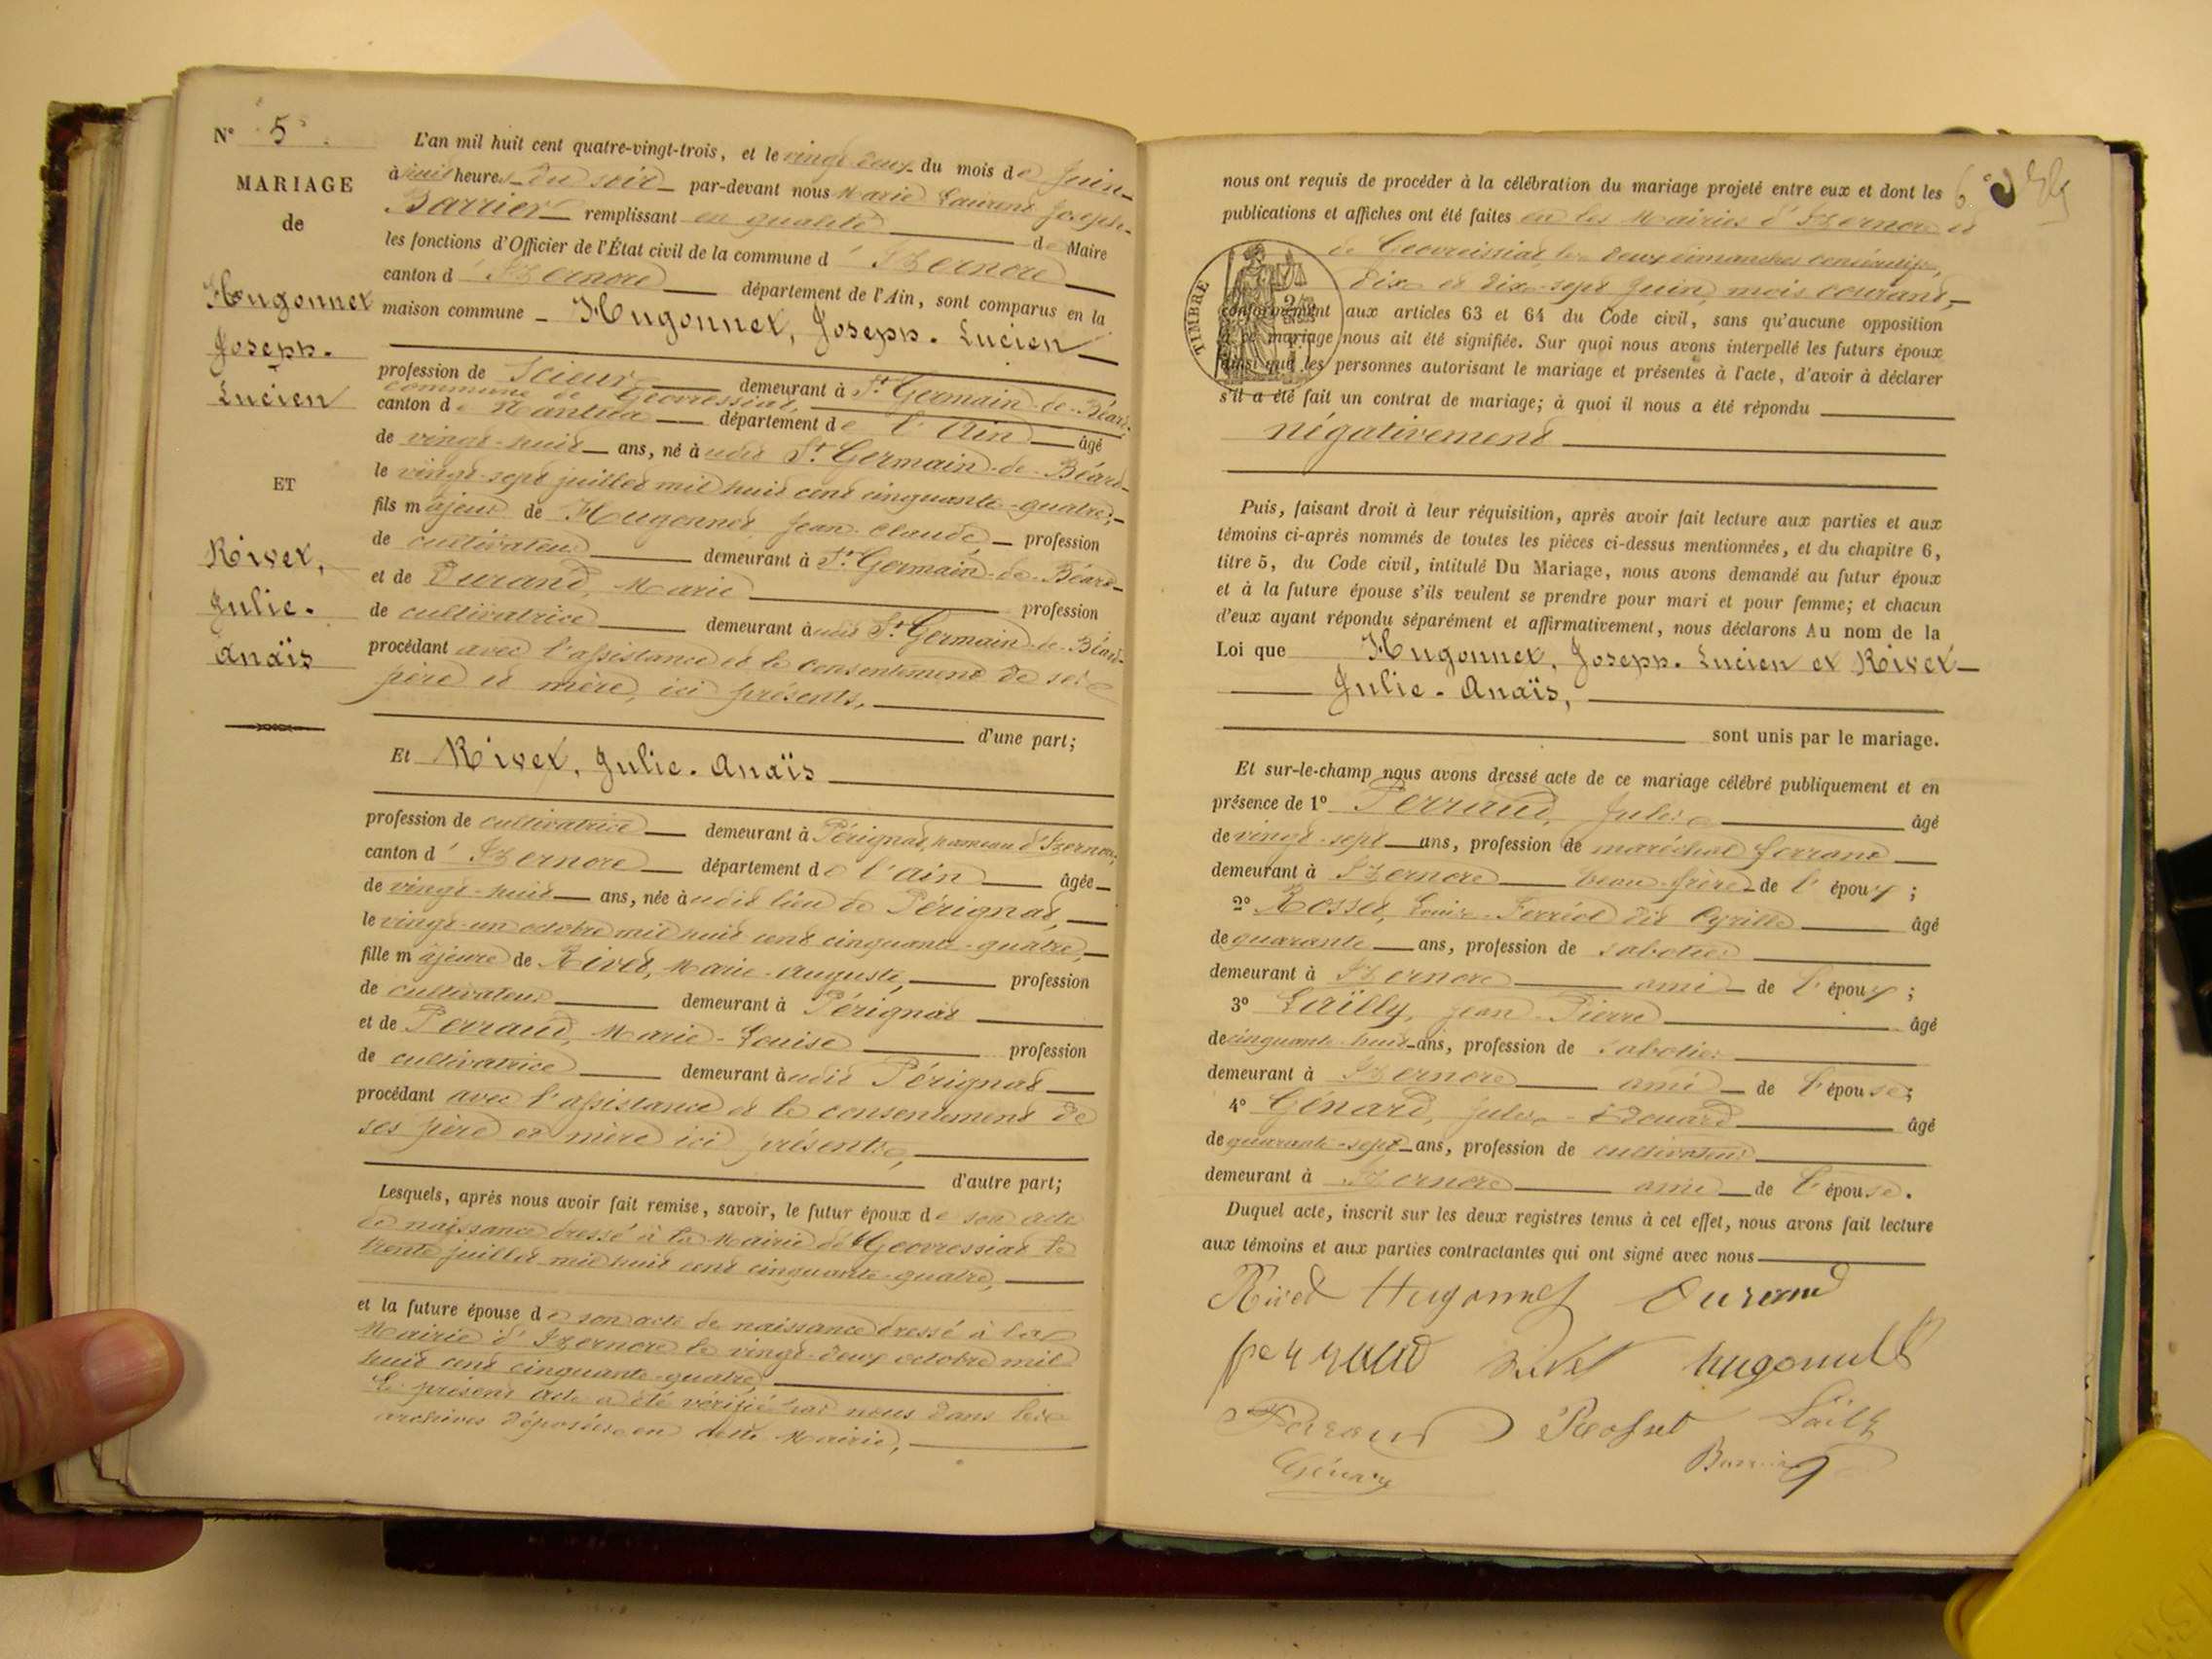 N° 5
MARIAGE
de
Hugonnet
Joseph-
Lucien
ET
Rivet,
Julie-
Anaïs
L'an mil huit cent quatre-vingt-trois, et le vingt deux du mois de Juin
à huit heures du soir par-devant nous Marie Laurent Joseph
Barrier remplissant en qualité de Maire
les fonctions d'Officier de l'État civil de la commune d'Izernore
canton d'Izernore département de l'Ain, sont comparus en la
maison commune Hugonnet, Joseph-Lucien
profession de Scieur demeurant à St Germain-de-Béard
commune de Géovressiat,
canton de Nantua département de l'Ain âgé
de vingt-huit ans, né audit St Germain-de-Béard
le vingt-sept juillet mil huit cent cinquante-quatre,
fils majeur de Hugonnet Jean-Claude profession
de cultivateur demeurant à St Germain-de-Béard
et de Durand, Marie profession
de cultivatrice demeurant audit St Germain-de-Béard
procédant avec l'assistance et le consentement de ses
père et mère, ici présents,
d'une part;
Et Rivet, Julie-Anaïs
profession de cultivatrice demeurant à Pérignat, hameau d'Izernore,
canton d'Izernore département de l'Ain âgée
de vingt-huit ans, née audit lieu de Pérignat,
le vingt-un octobre mil huit cent cinquante-quatre,
fille majeure de Rivet, Marie-Auguste, profession
de cultivateur demeurant à Pérignat
et de Perraud, Marie-Louise profession
de cultivatrice demeurant audit Pérignat
procédant avec l'assistance et le consentement de
ses père et mère ici présents,
d'autre part;
Lesquels, après nous avoir fait remise, savoir, le futur époux de son acte
de naissance dressé à la Mairie de Géovressiat le
trente juillet mil huit cent cinquante-quatre,
et la future épouse de son acte de naissance dressé à la
Mairie d'Izernore le vingt-deux octobre mil
huit cent cinquante-quatre,
Le présent acte a été vérifié par nous dans les
archives déposées en cette Mairie,
6
nous ont requis de procéder à la célébration du mariage projeté entre eux et dont les
publications et affiches ont été faites en les Mairies d'Izernore et
de Géovreissiat, les deux dimanches consécutifs,
dix et dix-sept Juin, mois courant,
TIMBRE
conformément aux articles 63 et 64 du Code civil, sans qu'aucune opposition
à ce mariage nous ait été signifiée. Sur quoi nous avons interpellé les futurs époux
ainsi que les personnes autorisant le mariage et présentes à l'acte, d'avoir à déclarer
s'il a été fait un contrat de mariage; à quoi il nous a été répondu
négativement
Puis, faisant droit à leur réquisition, après avoir fait lecture aux parties et aux
témoins ci-après nommés de toutes les pièces ci-dessus mentionnées, et du chapitre 6,
titre 5, du Code civil, intitulé Du Mariage, nous avons demandé au futur époux
et à la future épouse s'ils veulent se prendre pour mari et pour femme; et chacun
d'eux ayant répondu séparément et affirmativement, nous déclarons Au nom de la
Loi que Hugonnet, Joseph-Lucien et Rivet
Julie-Anaïs,
sont unis par le mariage.
Et sur-le-champ nous avons dressé acte de ce mariage célébré publiquement et en
présence de 1° Perraud, Jules âgé
de vingt-sept ans, profession de maréchal ferrant
demeurant à Izernore beau-frère de l'époux;
2° Rosset, Louis-Ferréol dit Cyrille âgé
de quarante ans, profession de sabotier
demeurant à Izernore ami de l'époux;
3° Laïlly, Jean-Pierre âgé
de cinquante-huit ans, profession de sabotier
demeurant à Izernore ami de l'épouse;
4° Génard, Jules-Edouard âgé
de quarante-sept ans, profession de cultivateur
demeurant à Izernore ami de l'épouse.
Duquel acte, inscrit sur les deux registres tenus à cet effet, nous avons fait lecture
aux témoins et aux parties contractantes qui ont signé avec nous
Rivet Hugonnet Durand
perraud Rivet hugonnet
Perraud Rosset Laïlly
Génard Barrier